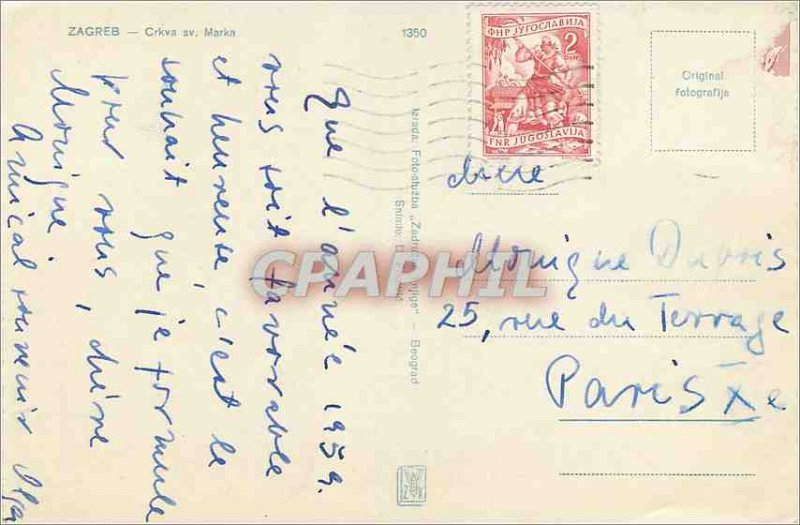 ZAGREB — Crkva sv. Marka
1350
ФНР ЈУГОСЛАВИЈА
2
DIN
FNR JUGOSLAVIJA
Original
fotografija
Que l'année 1959.
vous soit favorable
et heureuse, c'est le
souhait que je formule
pour vous, chère
Monique
Amical souvenir Olga
Izrada: Foto-služba „Zadružne knjige" — Beograd
Snimio:
Monique Dubois
25, rue du Terrage
Paris Xe
CPARPHIL